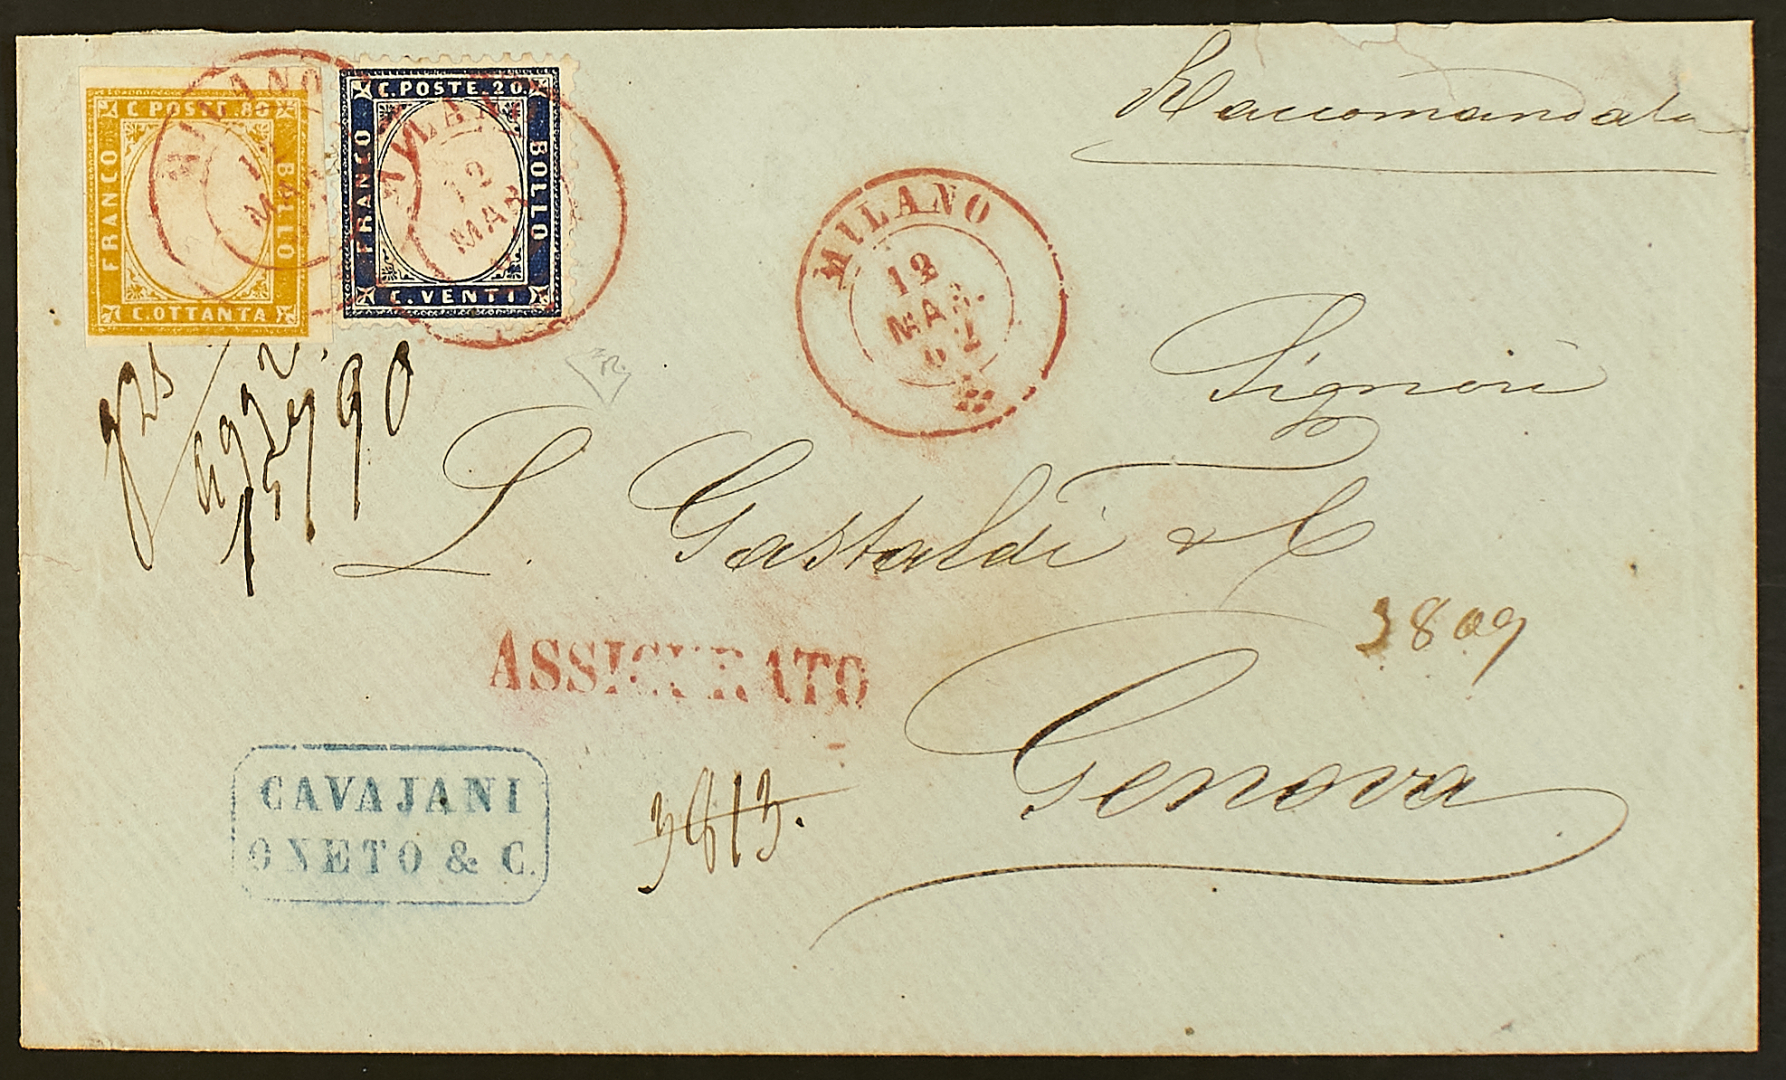 C. POSTE. 80
FRANCO
BOLLO
C. OTTANTA
C. POSTE. 20
FRANCO
BOLLO
C. VENTI
MILANO
12
MAR
MILANO
12
MAR
MILANO
12
MAR.
62
Raccomandata
Signori
L. Gastaldi & C
Genova
3809
ASSICURATO
CAVAJANI
ONETO & C.
3813.
90